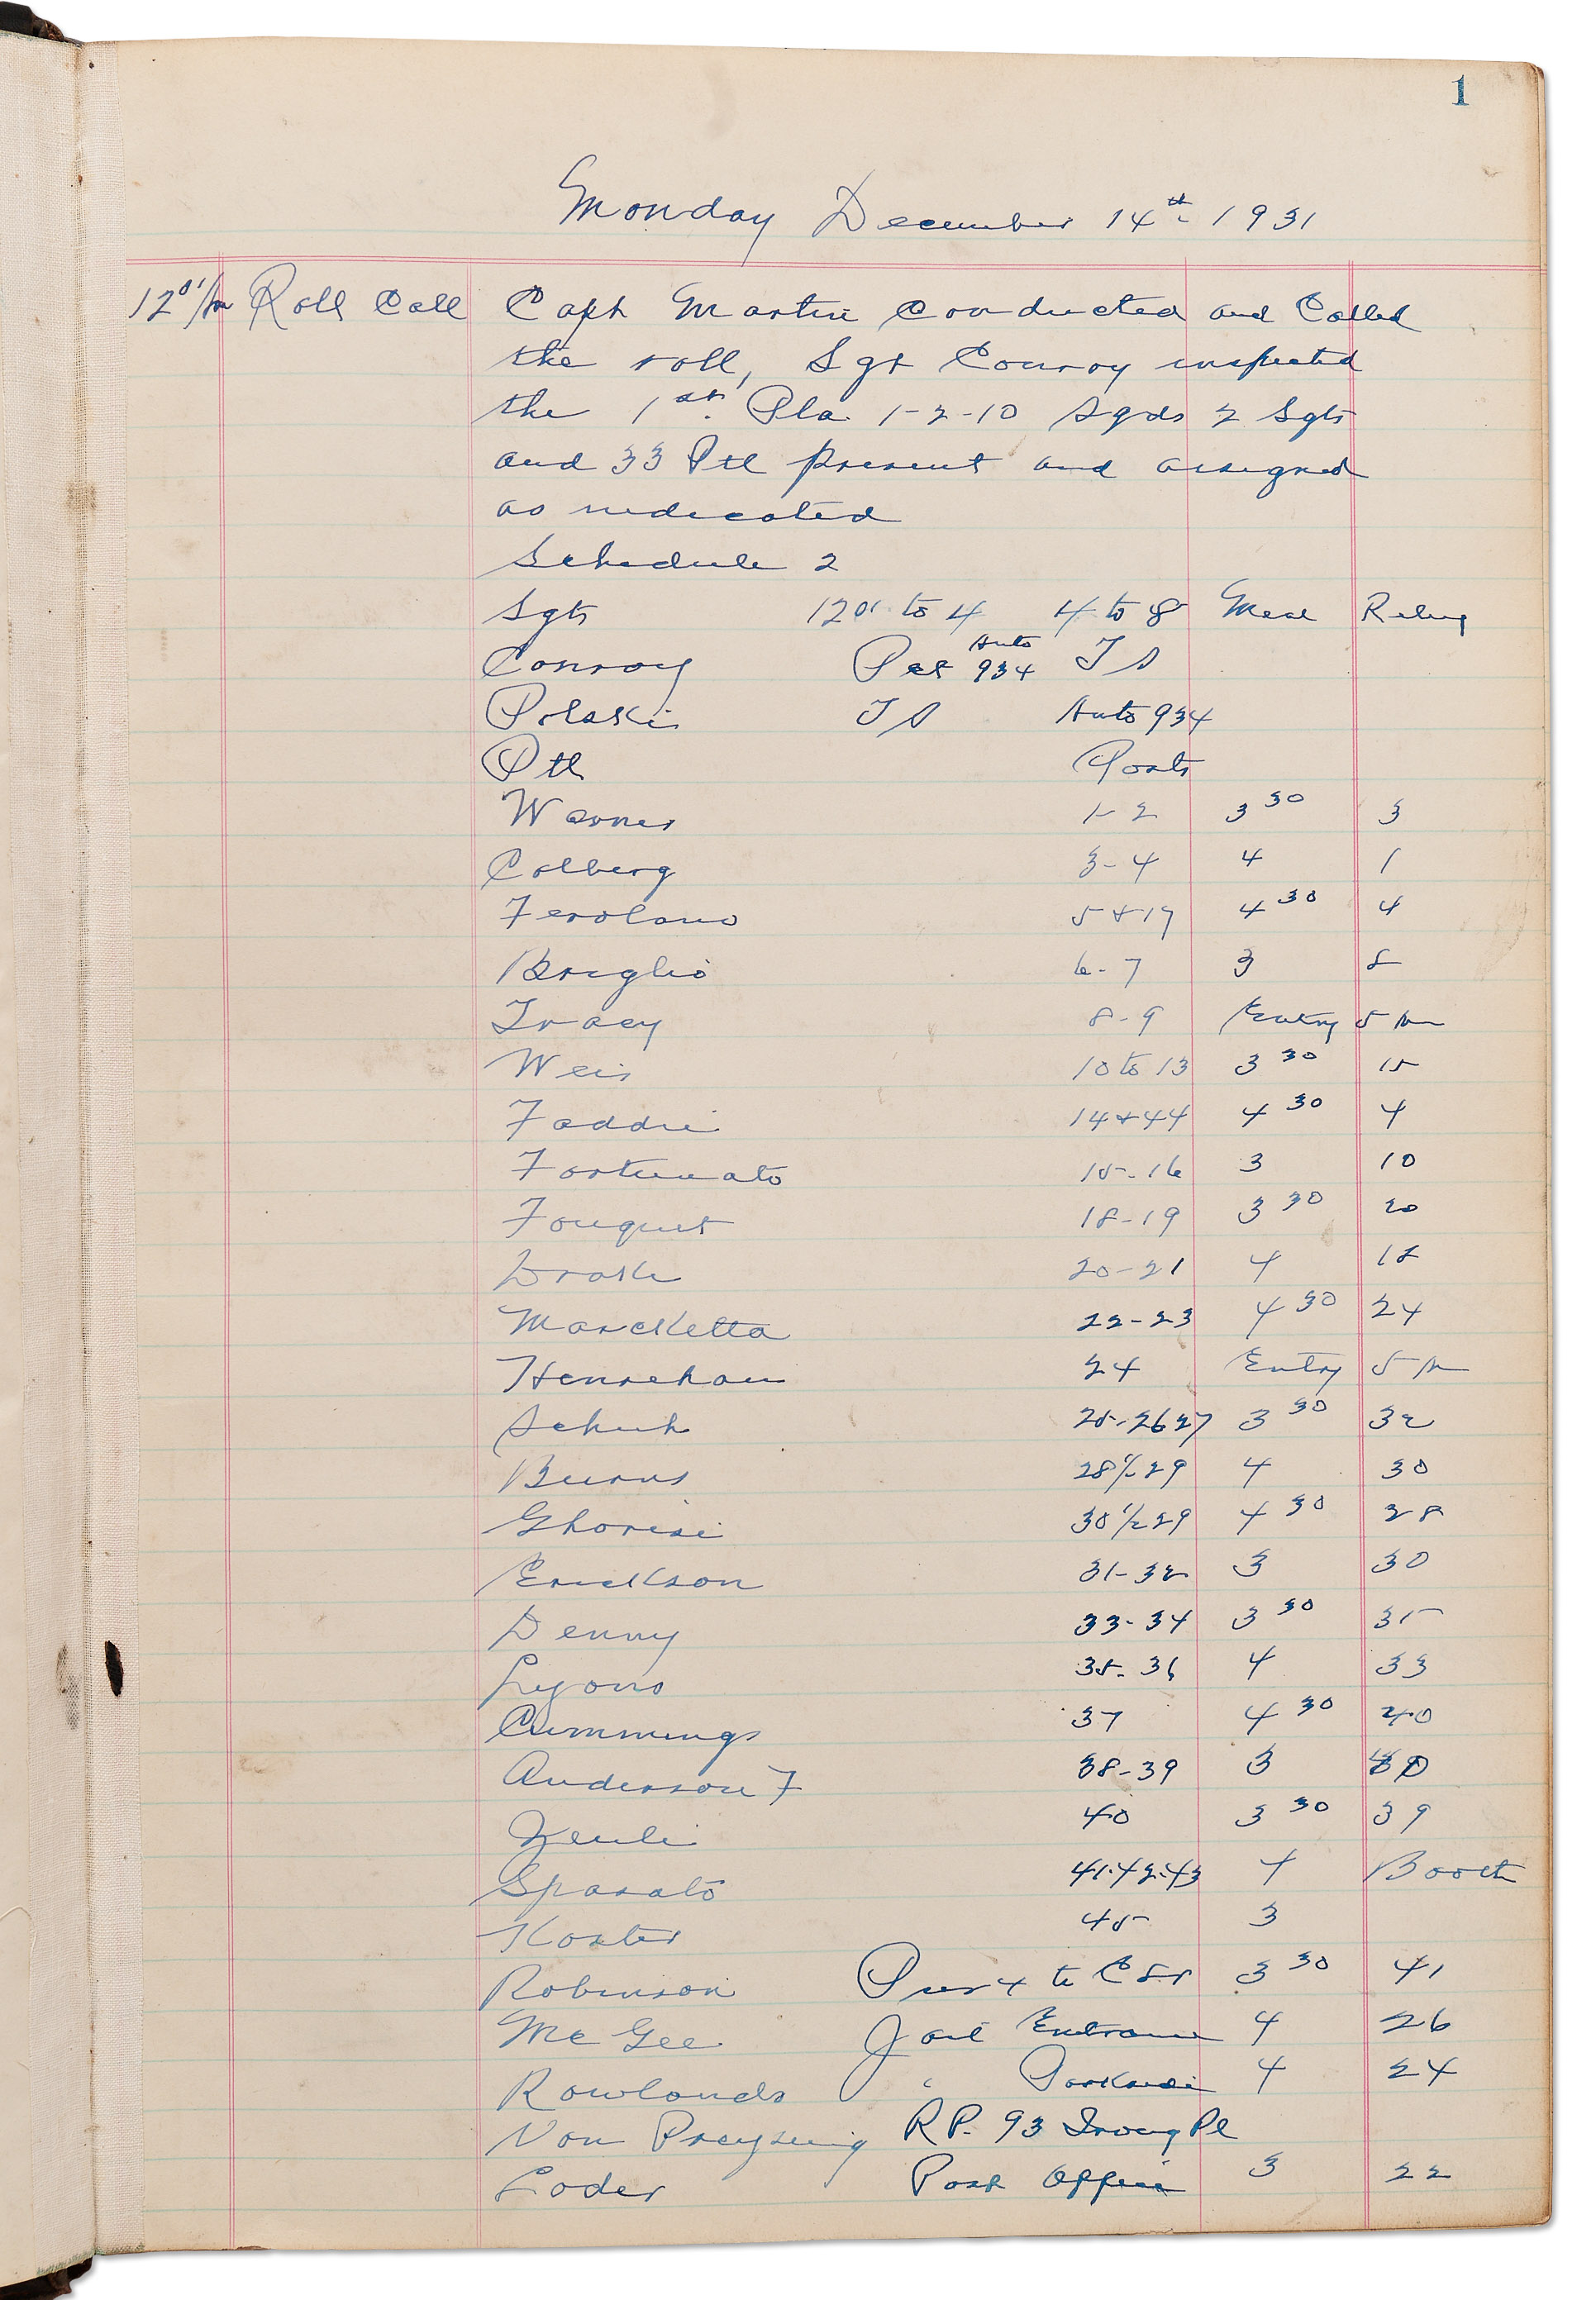 1
Monday December 14th 1931
12 01/am Roll Call Capt Martin Conducted and Called
the roll, Sgt Conroy inspected
the 1st. Pla. 1-2-10 Sqds 2 Sgts
and 33 Ptl present and assigned
as indicated
Schedule 2
Sgts 12 01 to 4 4 to 8 Meal Relieving
Conroy Pat Auto 934 TS
Polaski TS Auto 934
Ptl Posts
Warner 1-2 3 30 3
Colberg 3-4 4 1
Ferolano 5+17 4 30 4
Broglio 6-7 3 8
Tracy 8-9 Entry 5 am
Weis 10 to 13 3 30 15
Faddie 14+44 4 30 4
Fortunato 15-16 3 10
Fouquet 18-19 3 30 20
Drake 20-21 4 18
Marcketta 22-23 4 30 24
Henrehan 24 Entry 5 am
Schuh 25-26 27 3 30 32
Burns 28 1/2 29 4 30
Ghorisi 30 1/2 29 4 30 28
Erickson 31-32 3 30
Denny 33-34 3 30 35
Lyons 35-36 4 33
Cummings 37 4 30 40
Anderson F 38-39 3
Zeuli 40 3 30 39
Sparato 41-42-43 4 Booth
Koster 45 3
Robinson 4 to 3 30 41
Mc Gee Jail Entrance 4 26
Rowlands " 4 24
Von Preysing R.P. 93 Irving Pl
Loder Post Office 3 22